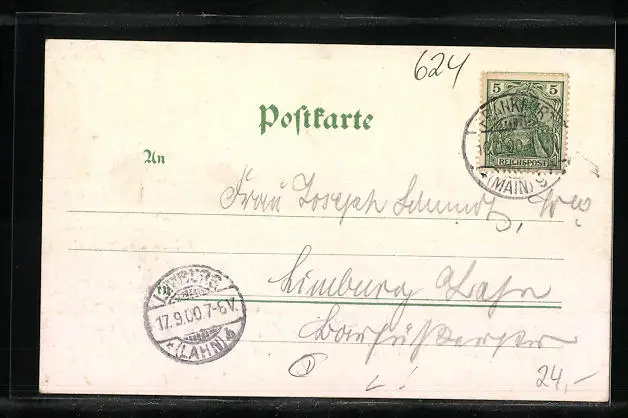 624
5 5
FRANKFURT
REICHSPOST
* (MAIN) 9
Postkarte
An
Frau Joseph Schmidt, Ww
Limburg Lahn
LIMBURG
17.9.00.7-8V.
* (LAHN) b
Barfüßerstr
24,-